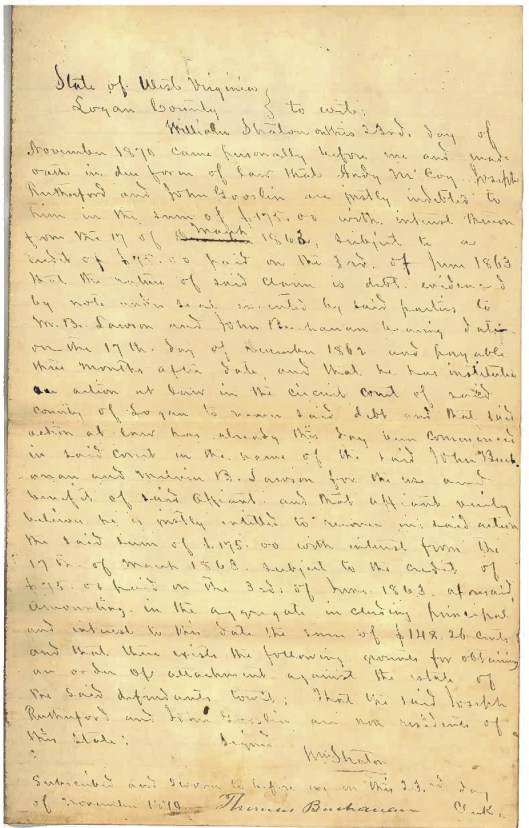 State of West Virginia }
Logan County } to wit;
William Straton on this 23rd. day of
November 1870 came personally before me and made
oath in due form of law that Andy McCoy Joseph
Rutherford and John Gooslin are justly indebted to
him in the sum of $175.00 with interest thereon
from the 17 of March 1863, subject to a
credit of $75.00 paid on the 3rd. of June 1863
that the nature of said claim is debt. evidenced
by note under seal executed by said parties to
M. B. Lawson and John Buchanan bearing date
on the 17th. day of December 1862 and payable
three months after date, and that he has instituted
an action at law in the circuit court of said
county of Logan to recover said debt and that said
action at law has already this day been commenced
in said Court in the name of the said John Buch
anan and Melvin B. Lawson for the use and
benefit of said Affiant and that affiant verily
believes he is justly entitled to recover in said action
the said sum of $175.00 with interest from the
17th. of March 1863. subject to the credit of
$75.00 paid on the 3rd. of June 1863. aforesaid,
amounting in the aggregate including principal
and interest to this date the sum of $148.26 Cents
and that there exists the following grounds for obtaining
an order of attachment against the estate of
the said defendants towit; That the said Joseph
Rutherford and John Gooslin are non residents of
this State; Signed
Wm Straton
Subscribed and sworn to before me on this 23rd day
of November 1870 Thomas Buchanan Clerk.